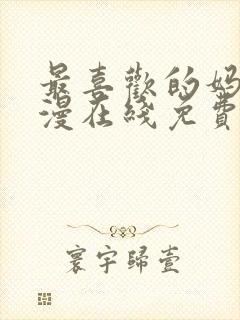 最喜歡的妈
漫在綫免費
寰宇歸壹